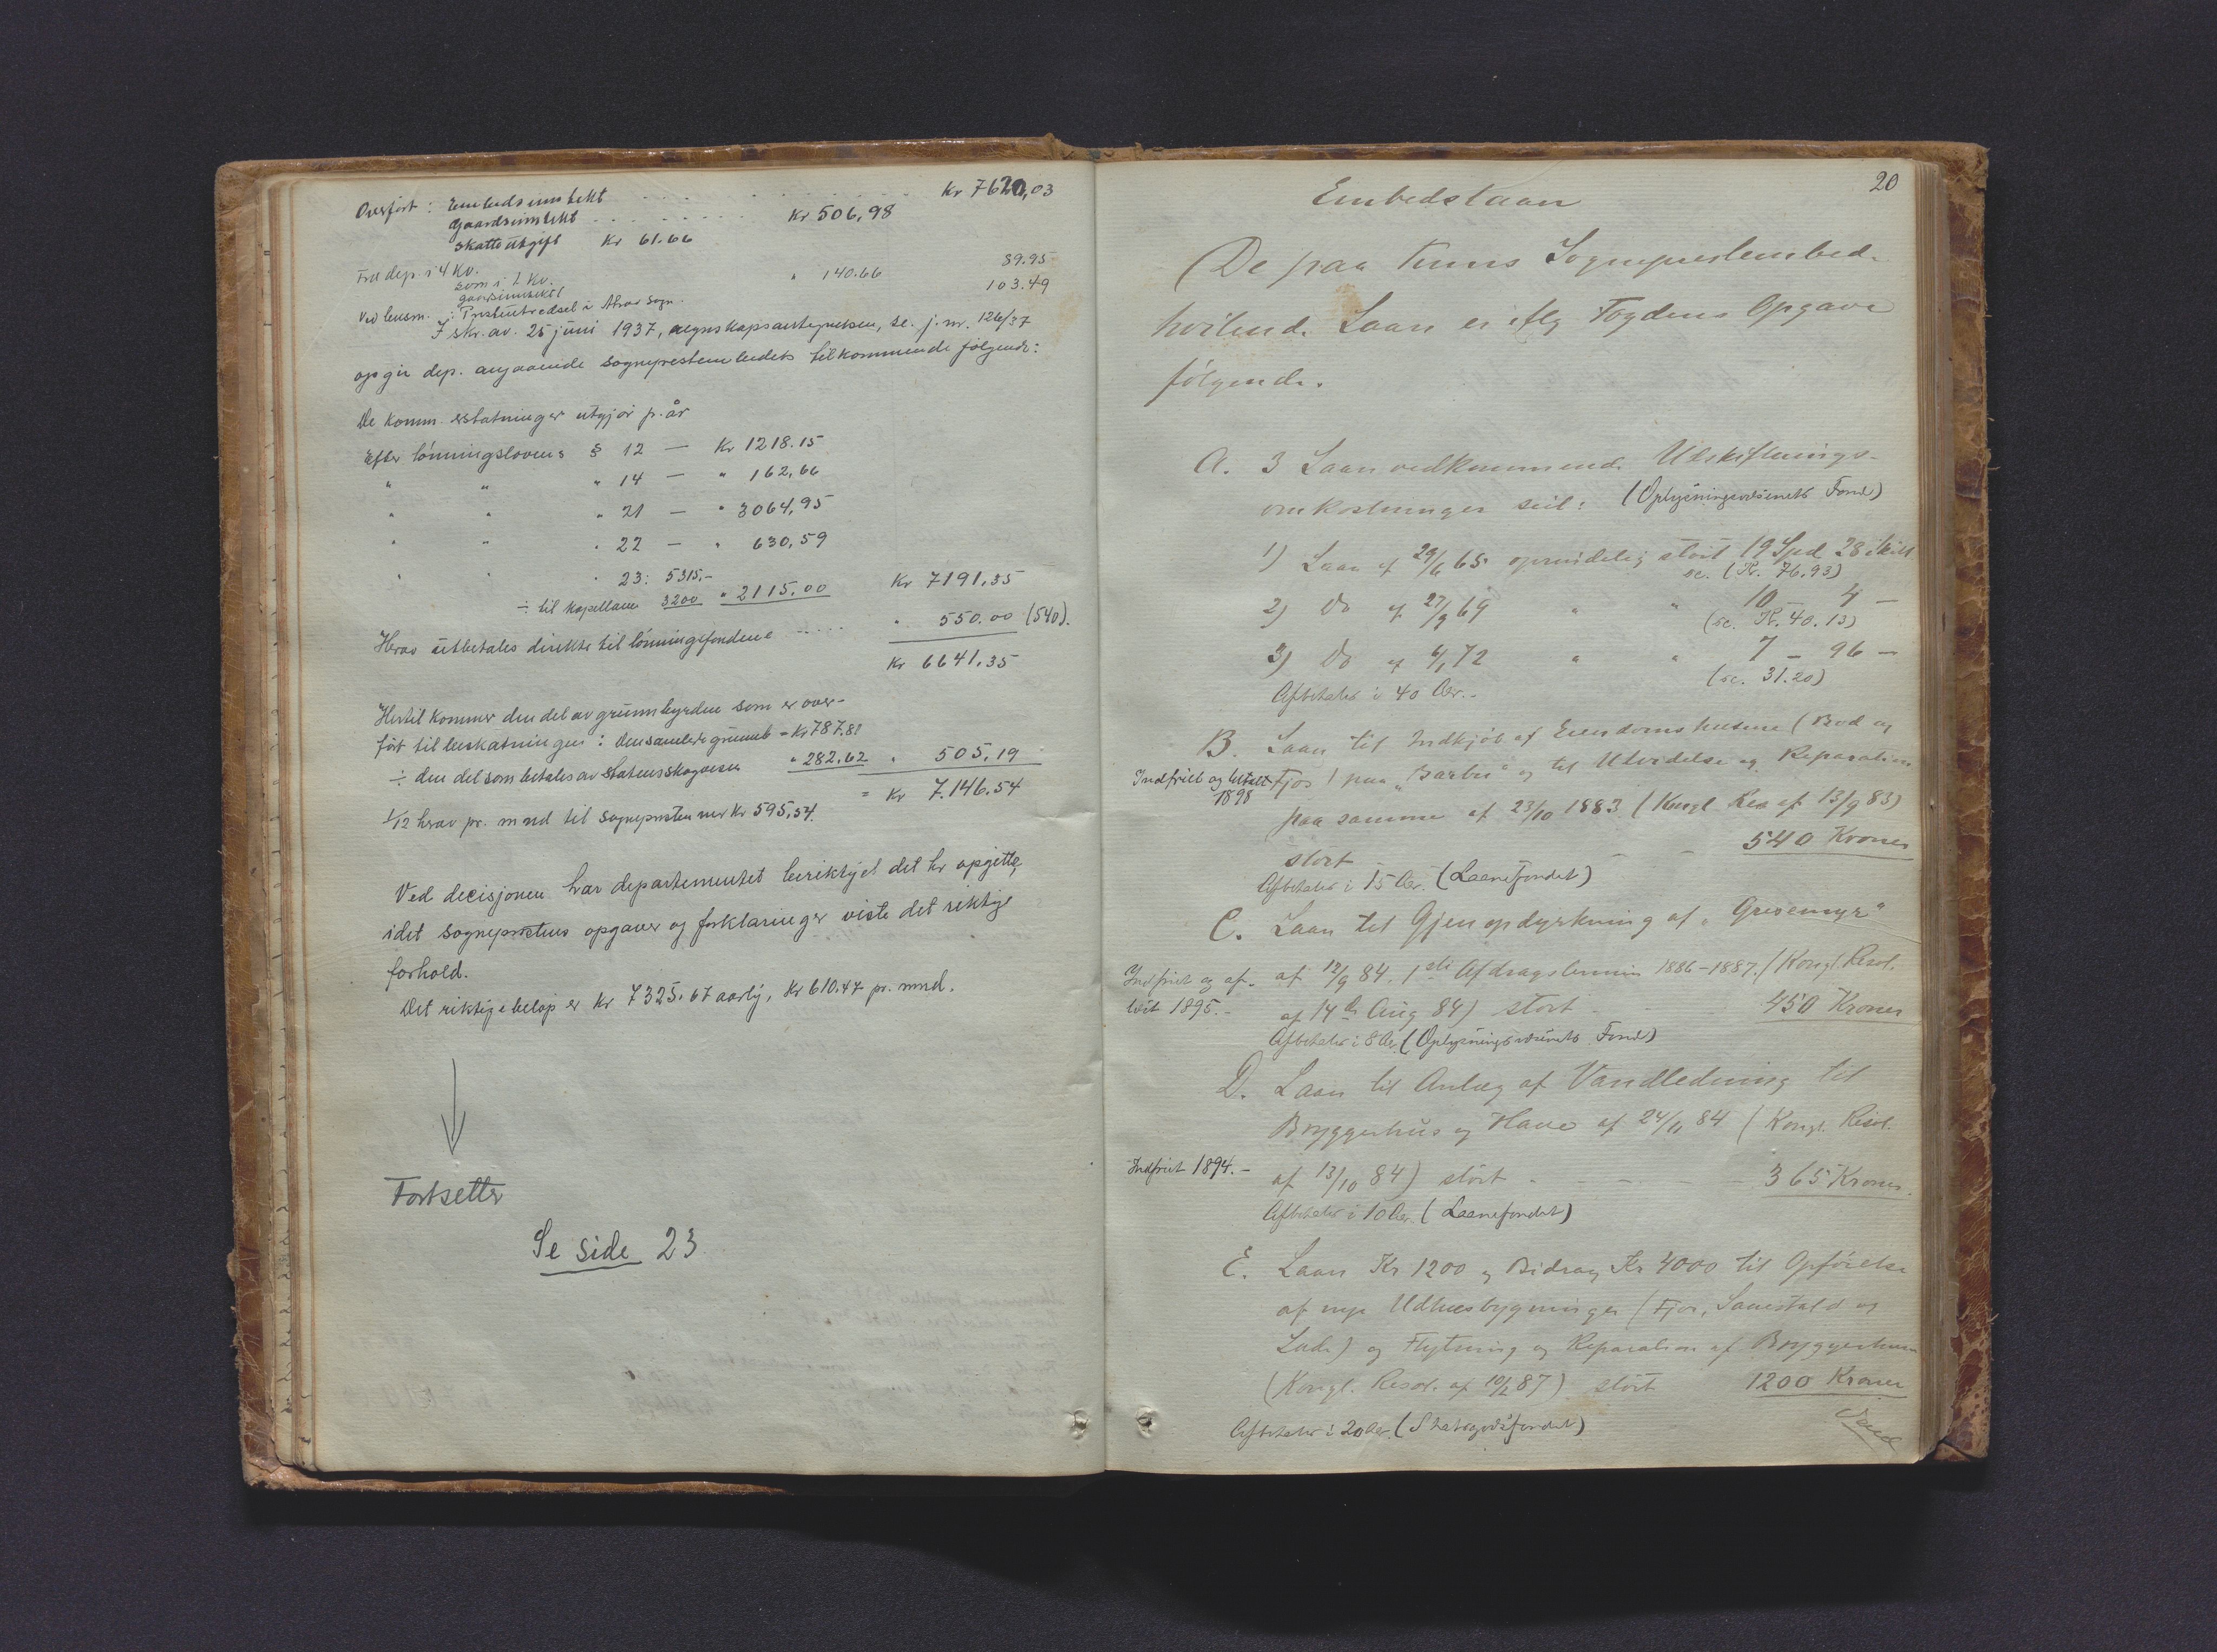 Overført: Embedsinntekt . . . . . . . . . . Kr 7620,03
Gaardsinntekt . . . . . . . . Kr 506,98
Skatteutgift Kr 61.66
Fra dep. i 4 kv. 39.95
som i 2. kv. " 140.66 103.49
gaardsinntekt
Ved lensm. : Presteutredsel i sogn.
I skr. av. 25 juni 1937, regnskapsantegnelsen, se. j. nr. 126/37
opgir dep. angaaende sogneprestembedets tilkommende følgende:
De komm. erstatninger utgjør p. år
Efter lønningslovens § 12 — Kr 1218.15
" " " 14 — " 162,66
" " " 21 — " 3064,95
" " " 22 — " 630,59
" " " 23: 5315,-
÷ til kapellanen 3200 " 2115.00 Kr 7191,35
Herav utbetales direkte til lønningsfondene ..... " 550.00 (540).
Kr 6641,35
Hertil kommer den del av grunnbyrden som er over-
ført til beskatningen: Den samlede grunnb = Kr 787.81
÷ den del som betales av Statens skogvesen " 282.62 " 505,19
= Kr 7.146.54
1/12 herav pr. mnd til sognepresten ner Kr 595,54.
Ved decisjonen har departementet beriktiget det her opgitte,
idet sogneprestens opgaver og forklaringer viste det riktige
forhold.
Det riktige beløp er kr 7325.67 aarlig, Kr 610.47 pr. mnd.
Fortsetter
Se side 23
20
Embedslaan
De paa Tuns Sogneprestembed-
hvilende Laan er iflg Fogdens Opgave
følgende.
A. 3 Laan vedkommende Udskiftnings-
omkostninger seil: (Oplysningsvæsenets Fond)
1) Laan af 29/6 65 oprindelig stort 19 Spd 28 Skill
sc. (Kr. 76.93)
2) Do af 27/9 69 " " 10 — 4 —
(sc. Kr. 40.13)
3) Do af 6/1 72 " " 7 — 96 —
(sc. 31.20)
Afbetales i 40 Aar.-
B. Laan til Indkjøb af Eiendomshusene (Bod og
Indfriet og betalt Fjøs) paa "Barbro" og til Utvidelse og Reparation
1898
paa samme af 23/10 1883 (Kongl Res af 13/9 83)
stort - - 540 Kroner
Afbetales i 15 Aar. (Laanefondet)
C. Laan til Gjenopdyrkning af "Gresemyr"
Indfriet og af- af 12/9 84. 1ste Afdragstermin 1886-1887. (Kongl. Resol.
løst 1895.- af 14de Aug 84) stort - - 450 Kroner
Afbetales i 8 Aar. (Oplysningsvæsenets Fond)
D. Laan til Anlæg af Vandledning til
Bryggerhus og Have af 24/11 84 (Kongl. Resol.
Indfriet 1894.- af 13/10 84) stort - - - - 365 Kroner.
Afbetales i 10 Aar. (Laanefondet)
E. Laan Kr 1200 og Bidrag Kr 4000 til Opførelse
af nye Udhusbygninger (Fjøs, Sauestald og
Lade) og Flytning og Reparation af Bryggerhuset
(Kongl. Resol. af 10/2 87) stort 1200 Kroner
Afbetales i 20 Aar. (Statsgodsfondet)